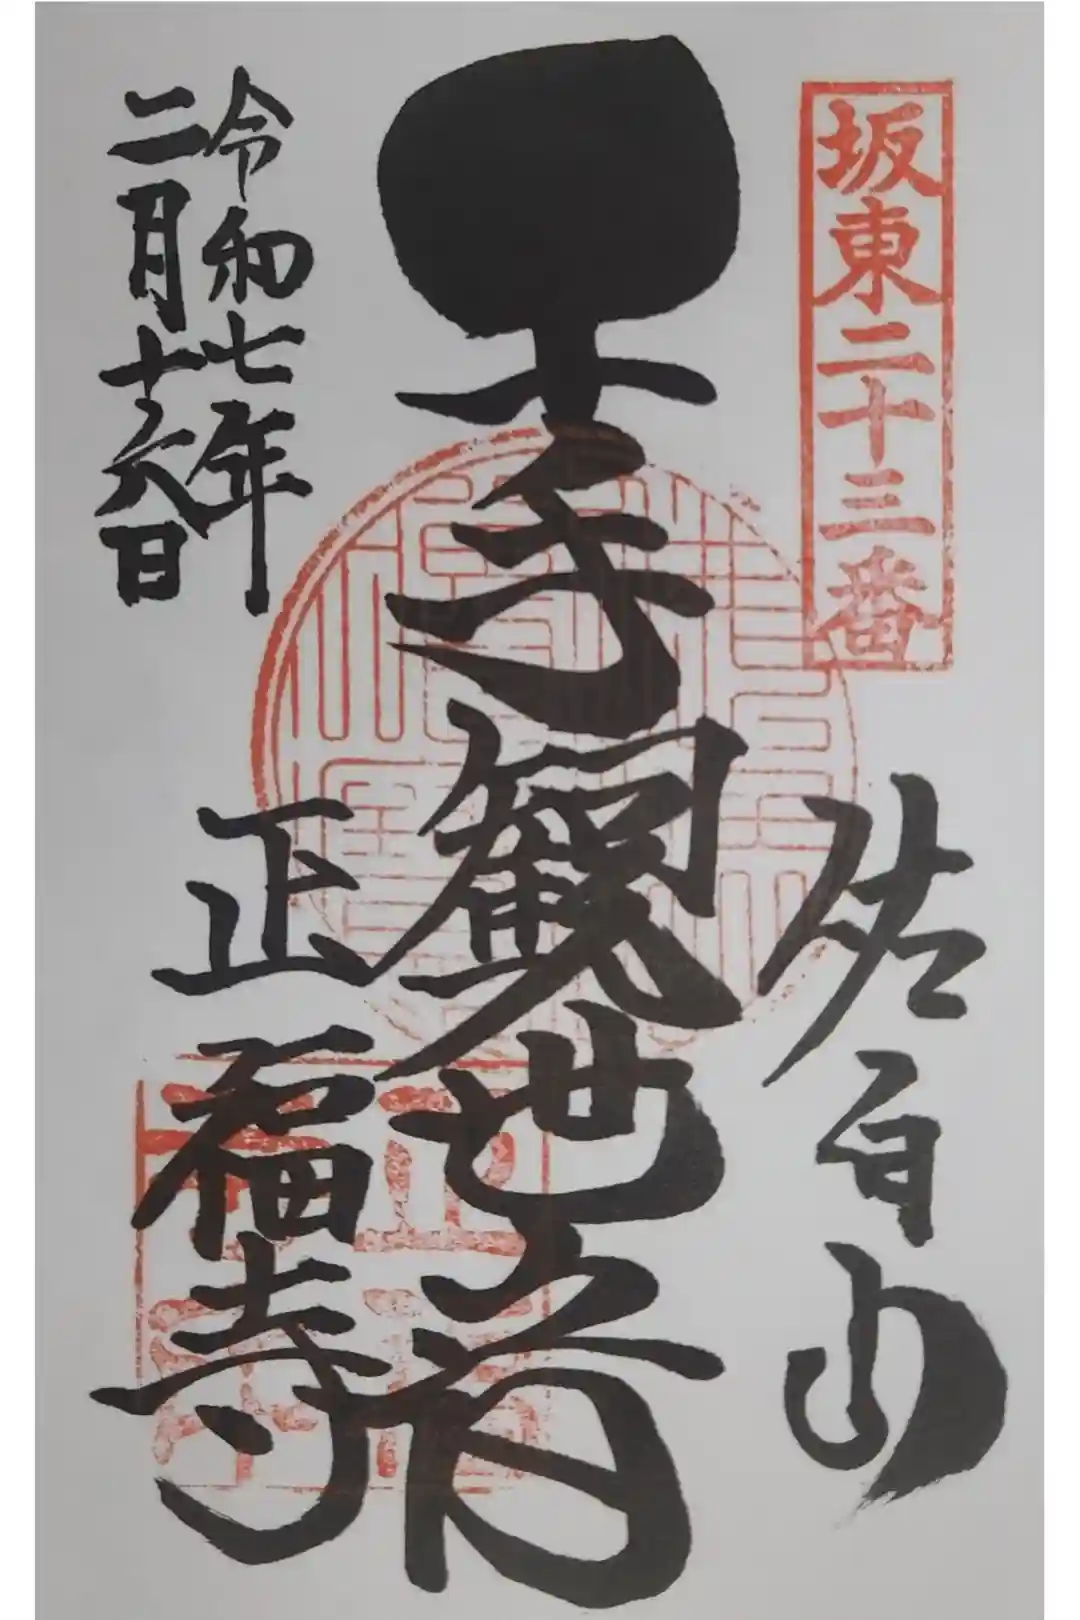 坂東二十三番
佐白山
千手観世音
令和七年
二月十六日
正福寺